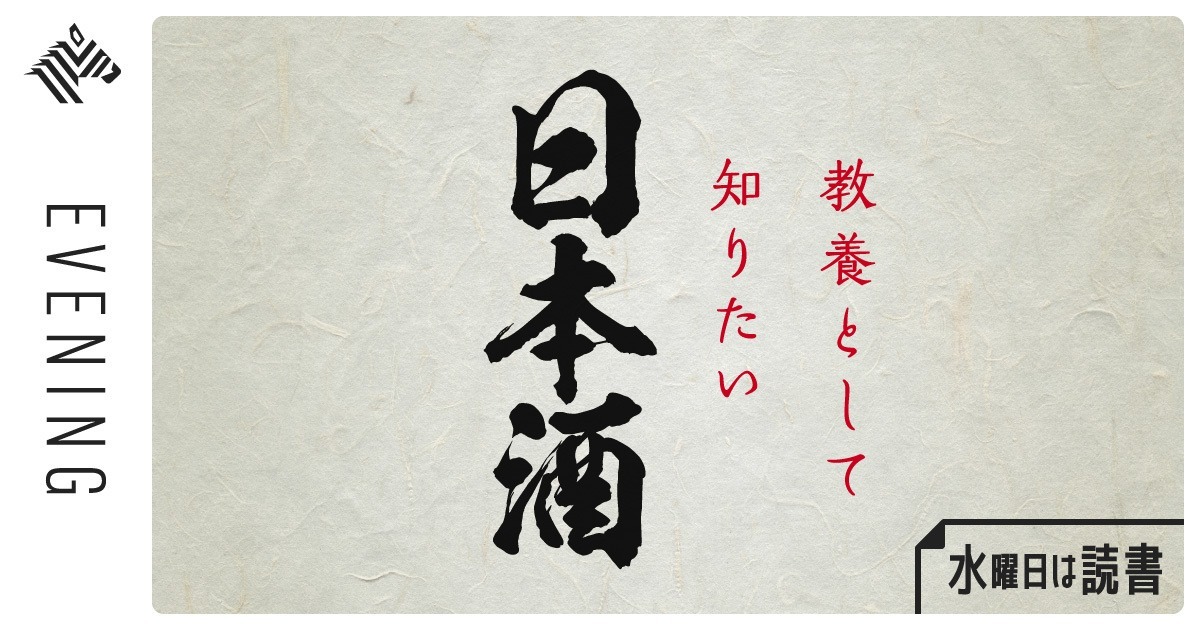 EVENING
教養として
知りたい
日本酒
水曜日は読書